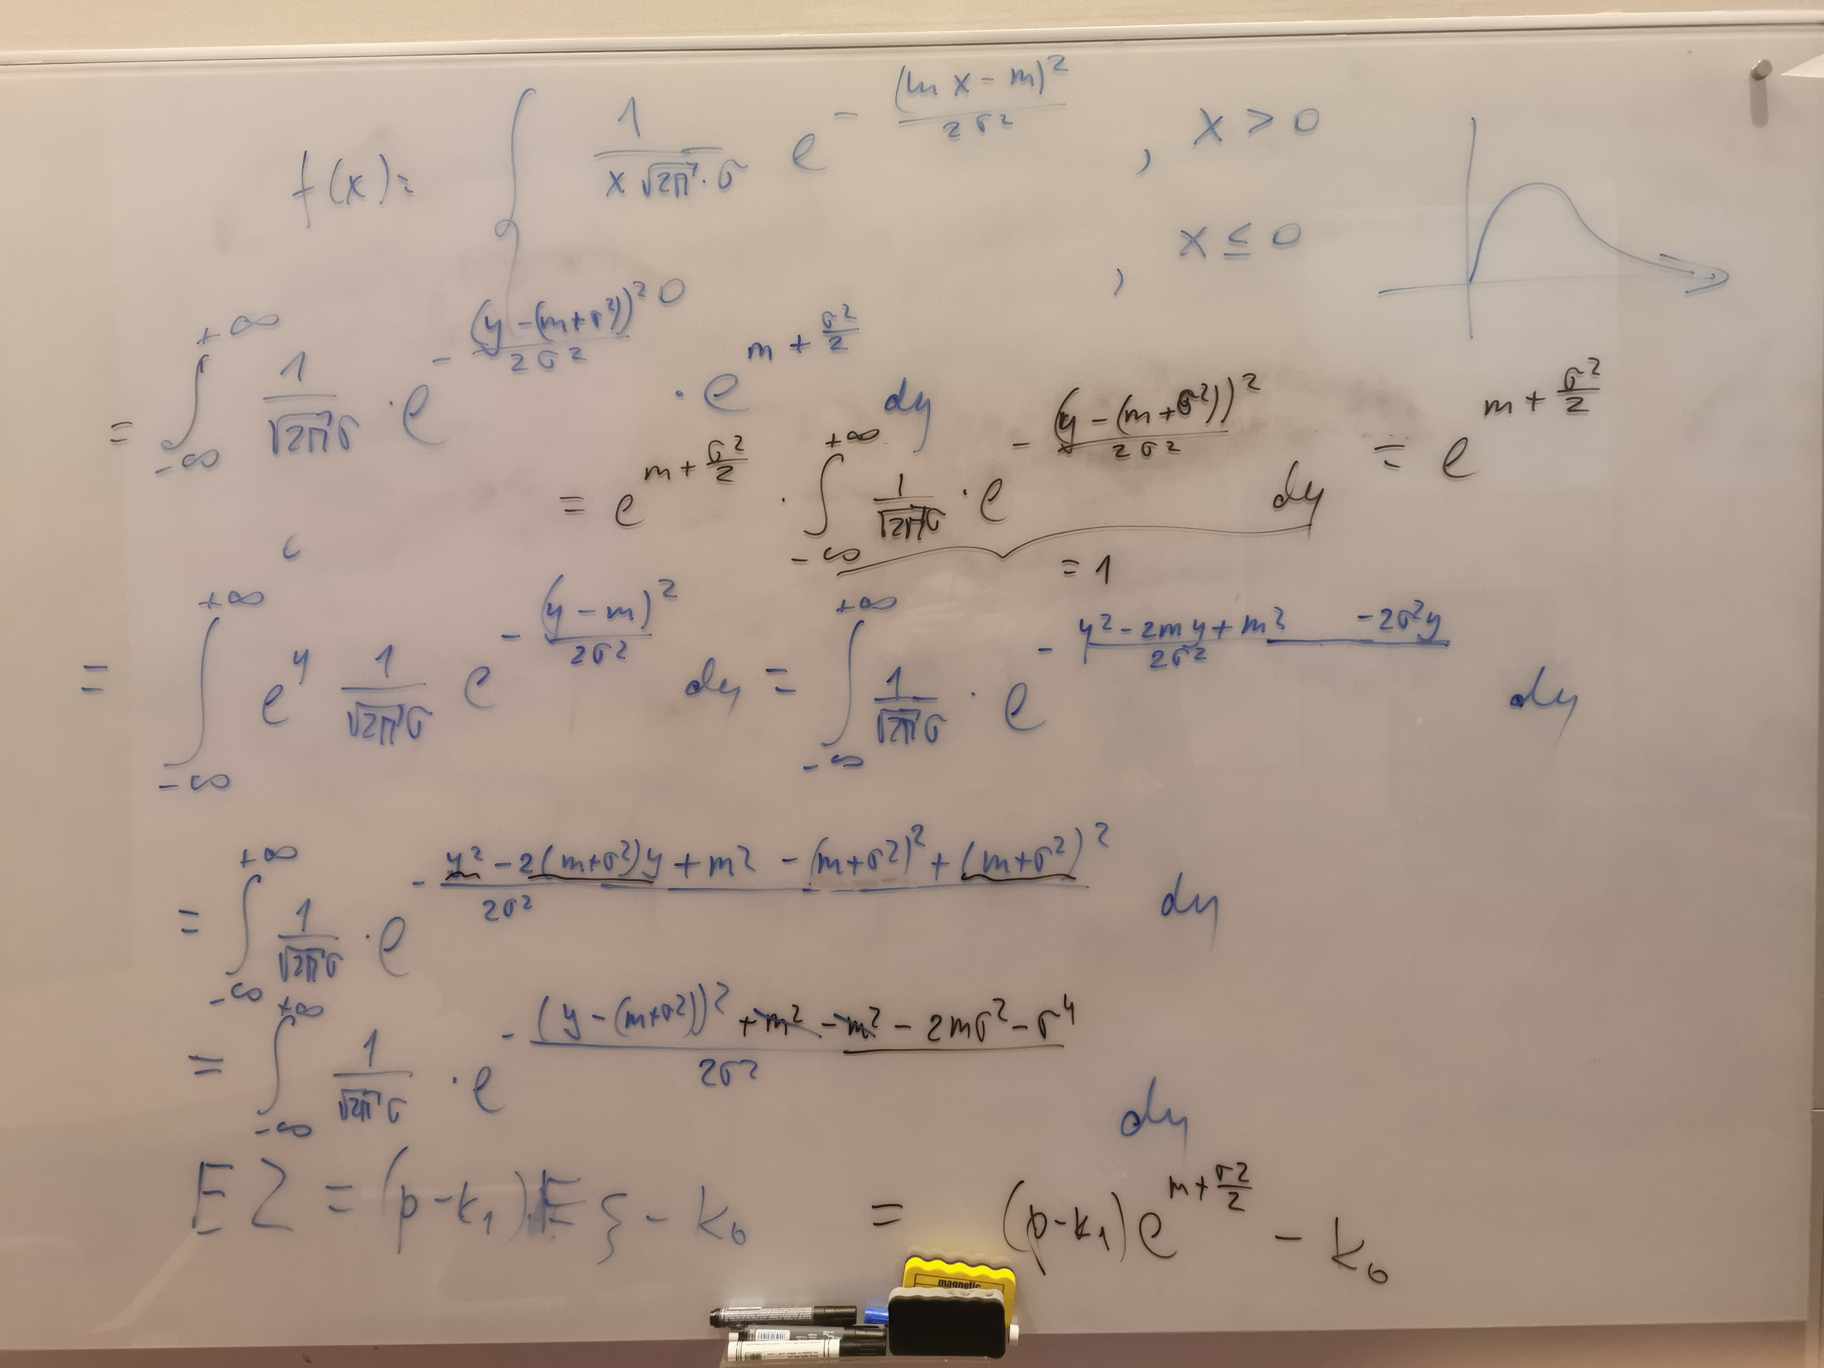 f(x) = { 1/(x√2π · σ) e^(-(ln x - m)²/(2σ²)) , x > 0
0 , x ≤ 0
= ∫_{-∞}^{+∞} 1/(√2π σ) · e^(-(y - (m+σ²))²/(2σ²)) · e^(m + σ²/2) dy
= e^(m + σ²/2) · ∫_{-∞}^{+∞} 1/(√2π σ) · e^(-(y - (m+σ²))²/(2σ²)) dy = e^(m + σ²/2)
= 1
= ∫_{-∞}^{+∞} e^y 1/(√2π σ) e^(-(y - m)²/(2σ²)) dy = ∫_{-∞}^{+∞} 1/(√2π σ) · e^(-(y² - 2my + m² - 2σ²y)/(2σ²)) dy
= ∫_{-∞}^{+∞} 1/(√2π σ) · e^(-(y² - 2(m+σ²)y + m² - (m+σ²)² + (m+σ²)²)/(2σ²)) dy
= ∫_{-∞}^{+∞} 1/(√2π σ) · e^(-((y - (m+σ²))² + m² - m² - 2mσ² - σ⁴)/(2σ²)) dy
EZ = (p - k₁) Eξ - k₀ = (p - k₁) e^(m + σ²/2) - k₀
magnetic